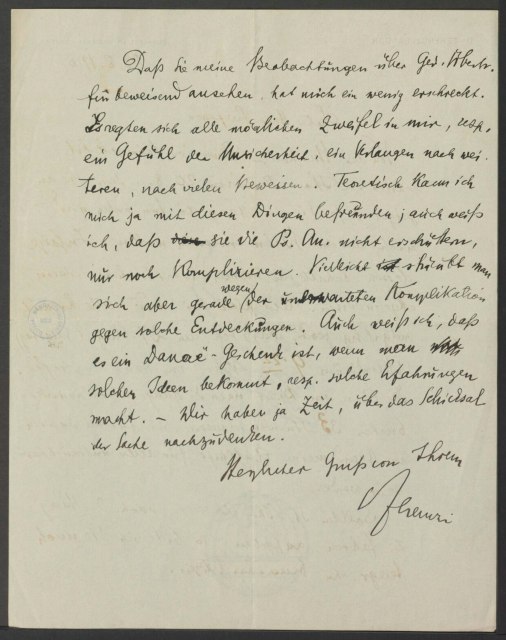 Daß Sie meine Beobachtungen über Ged. Übertr.
für beweisend ansehen, hat mich ein wenig erschreckt.
Es regten sich alle möglichen Zweifel in mir, resp.
ein Gefühl der Unsicherheit, ein Verlangen nach wei-
teren, nach vielen Beweisen. Teoretisch kann ich
mich ja mit diesen Dingen befreunden; auch weiß
ich, daß sie die Ps. An. nicht erschüttern,
nur noch komplizieren. Vielleicht sträubt man
sich aber gerade wegen der unerwarteten Komplikation
gegen solche Entdeckungen. Auch weiß ich, daß
es ein Danaë-Geschenk ist, wenn man
solchen Ideen bekommt, resp. solche Erfahrungen
macht. – Wir haben ja Zeit, über das Schicksal
der Sache nachzudenken.
Herzlicher Gruß von Ihrem
Ferenczi